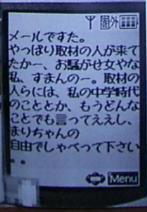 圏外
メールですた。
やっぱり取材の人が来て
たかー、お騒がせ女やな
私、すまんのー。取材の
人らには、私の中学時代
のこととか、もうどんな
ことでも言ってええし、
まりちゃんの
自由でしゃべって下さい
。。
Menu